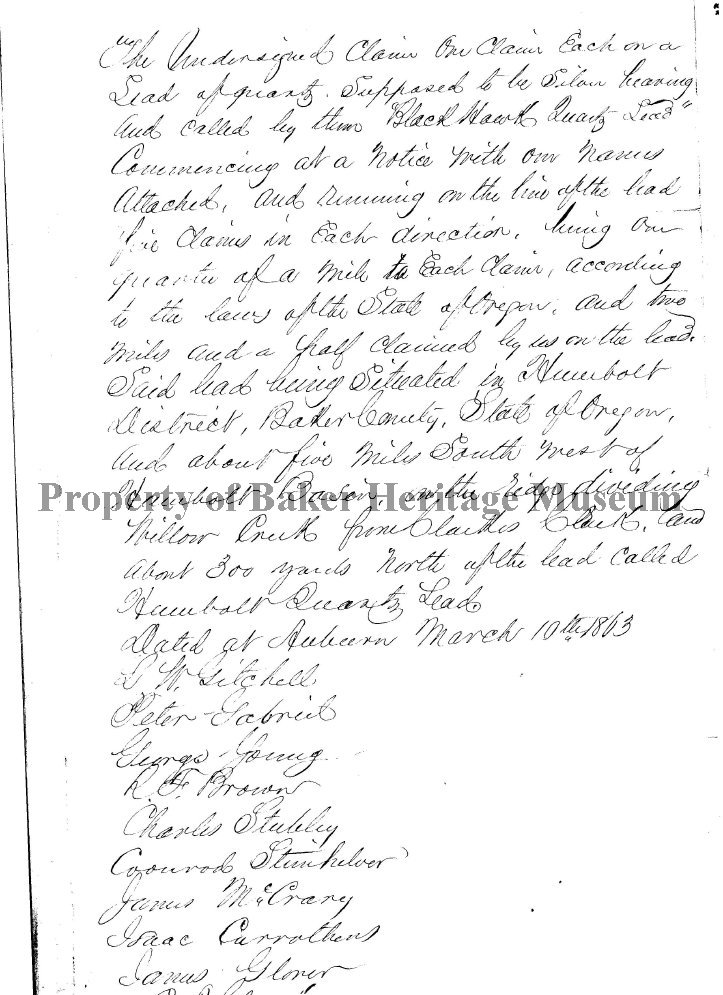 The Undersigned Claim One Claim Each on a
Lead of quartz. Supposed to be Silver bearing
And called by them "Black Hawk Quartz Lead"
Commencing at a Notice With our Names
Attached, And running on the line of the lead
five Claims in Each direction, being One
quarter of a Mile to Each Claim, according
to the laws of the State of Oregon, and two
Miles and a half Claimed by us on the lead.
Said lead being Situated in Humbolt
District, Baker County, State of Oregon,
And about five Miles South West of
Humbolt Basin, on the ridge dividing
Property of Baker Heritage Museum
Willow Creek from Clarkes Creek, And
About 300 yards North of the lead called
Humbolt Quartz Lead
Dated at Auburn March 10th 1863
W. Gitchell
Peter Gabriel
George Young
R. F. Brown
Charles Stubley
Coonrod
James McCrary
Isaac Carrothers
James Glover